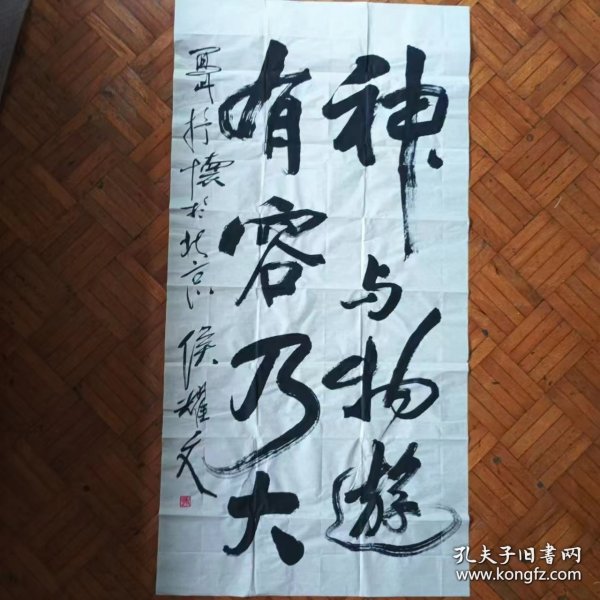 神与物游
有容乃大
抒懷於北京 侯耀文
孔夫子旧书网
www.kongfz.com